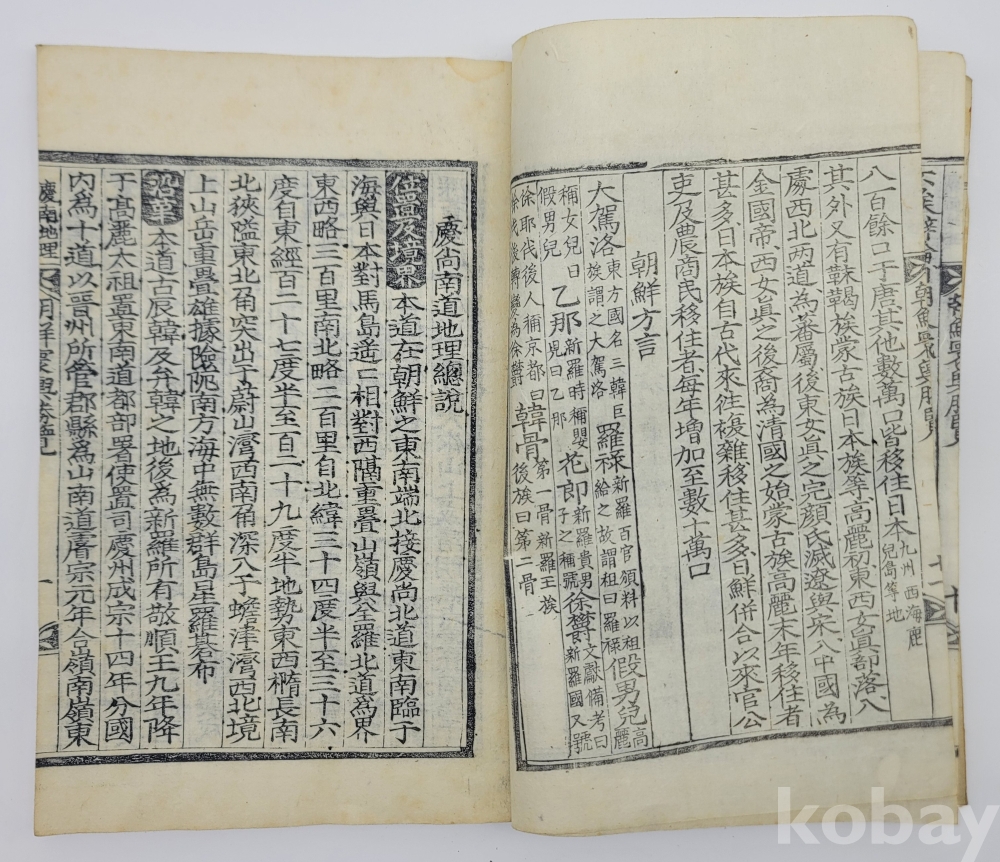 八百餘口于唐其他數萬口皆移住日本九州 西海鹿兒島等地
其外又有靺鞨族蒙古族日本族等高麗初東西女眞部落八
處西北两道爲蕃屬後東女眞之完顔氏滅遼與宋八中國爲
金國帝西女眞之後裔爲清國之始蒙古族高麗末年移住者
甚多日本族自古代來往複雜移住甚多日鮮併合以來官公
吏及農商民移住者每年增加至數十萬口
朝鮮方言
大駕洛東方國名三韓巨族謂之大駕洛 羅祿新羅百官頒料以租給之故謂租曰羅祿 假男兒高麗
稱女兒曰假男兒 乙那新羅時稱嬰兒曰乙那 花郎新羅貴男子之稱號 徐菀文獻備考曰新羅國又號
徐耶伐後人稱京都曰徐伐後轉變爲徐菀 韓骨第一骨新羅王族後族曰第二骨
慶尙南道地理總說
位置及境界 本道在朝鮮之東南端北接慶尙北道東南臨于
海與日本對馬島遙々相對西隔重疊山嶺與全羅北道爲界
東西略三百里南北略二百里自北緯三十四度半至三十六
度自東經百二十七度半至百二十九度半地勢東西橢長南
北狹隘東北角突出于蔚山灣西南角深八于蟾津灣西北境
上山岳重疊雄據險阨南方海中無數群島星羅碁布
沿革 本道古辰韓及弁韓之地後爲新羅所有敬順王九年降
于高麗太祖置東南道都部署使置司慶州成宗十四年分國
內爲十道以晋州所管郡縣爲山南道睿宗元年合嶺南嶺東
慶南地理
朝鮮寰輿勝覽
一